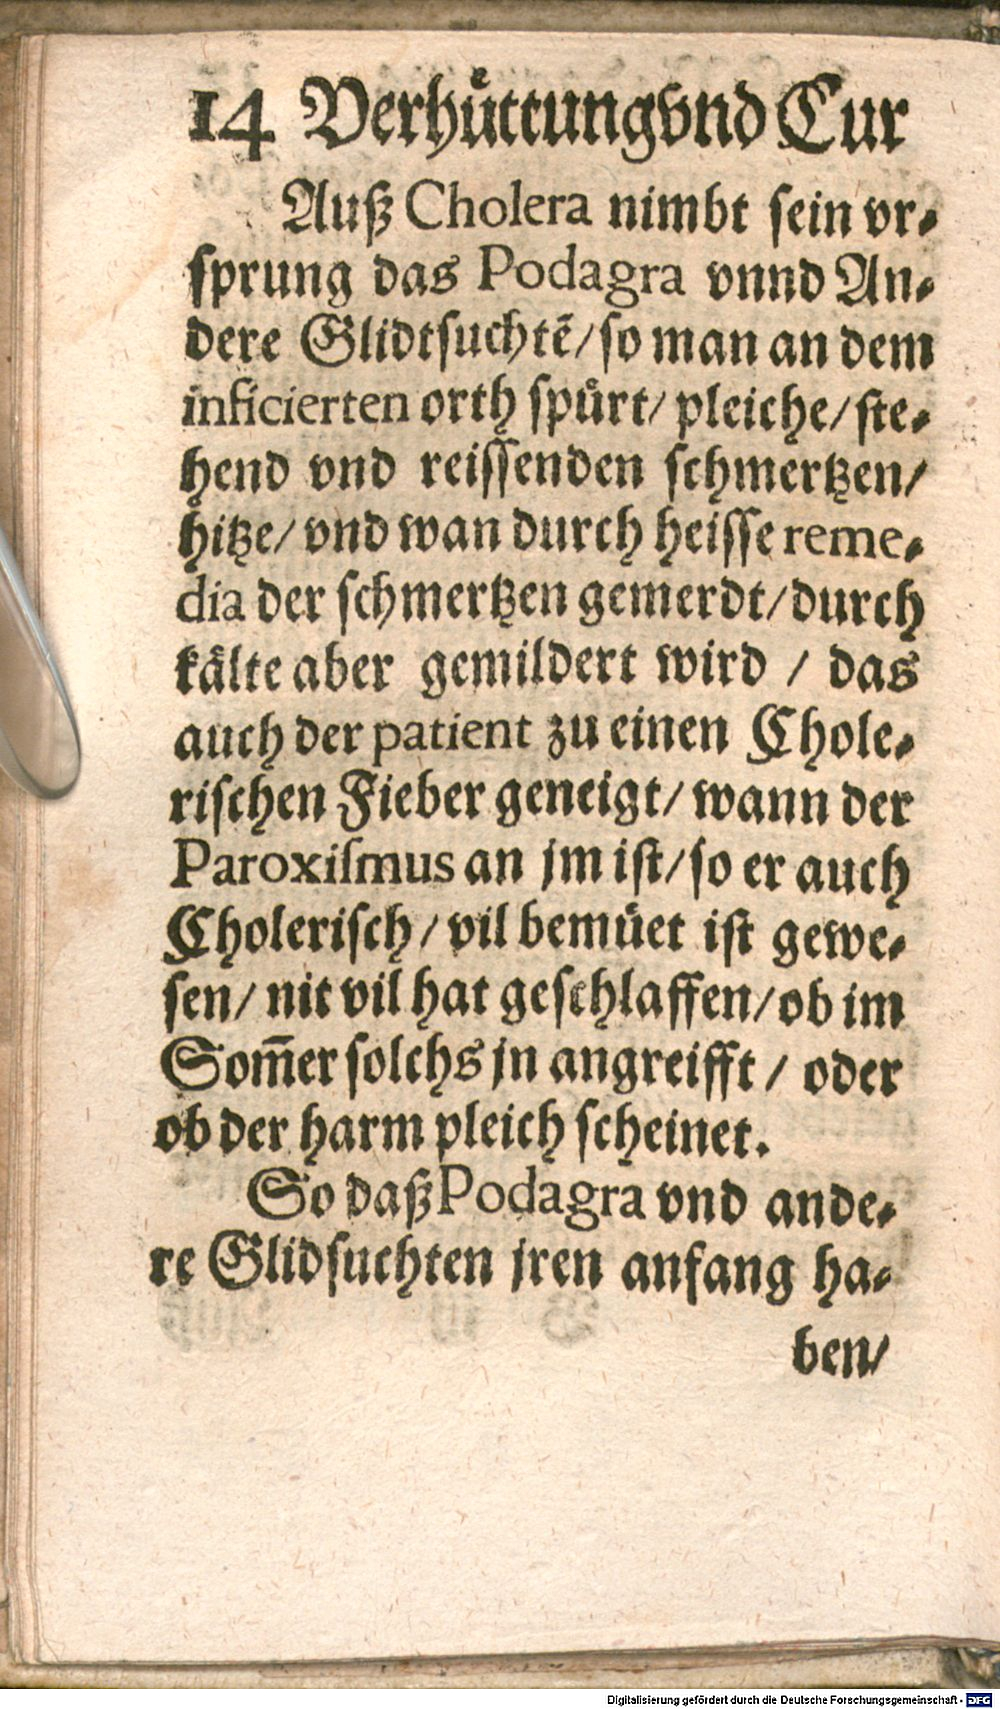 14 Verhuͤttung vnd Cur
Auß Cholera nimbt ſein vr⸗
ſprung das Podagra vnnd An⸗
dere Glidtſuchtẽ/ſo man an dem
inficierten orth ſpuͤrt/ pleiche/ ſte⸗
hend vnd reiſſenden ſchmertzen/
hitze/ vnd wan durch heiſſe reme⸗
dia der ſchmertzen gemerdt/durch
kaͤlte aber gemildert wird / das
auch der patient zu einen Chole⸗
riſchen Fieber geneigt/ wann der
Paroxiſmus an jm iſt/ſo er auch
Choleriſch/ vil bemuͤet iſt gewe⸗
ſen/ nit vil hat geſchlaffen/ob im
Som̃er ſolchs jn angreifft / oder
ob der harm pleich ſcheinet.
So daß Podagra vnd ande⸗
re Glidſuchten jren anfang ha⸗
ben/
Digitalisierung gefördert durch die Deutsche Forschungsgemeinschaft - DFG